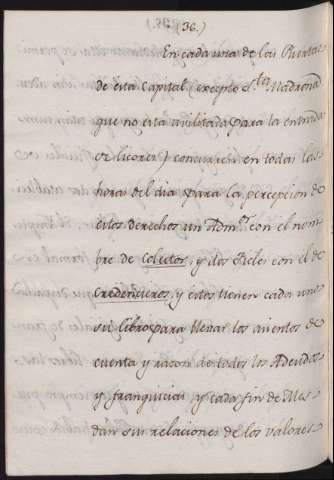 (36.)
En cada una de las Puertas
de esta Capital (excepto S.ta Madrona
que no está avilitada para la entrada
de licores) concurren en todas las
horas del dia para la percepcion de
estos derechos un Adm.or con el nom-
bre de Colector, y dos Fieles con el de
Credencieros, y estos tienen cada uno
su libro para llevar los asientos de
cuenta y razon de todos los Adeudos
y franquicias y cada fin de Mes
dan sus relaciones de los valores